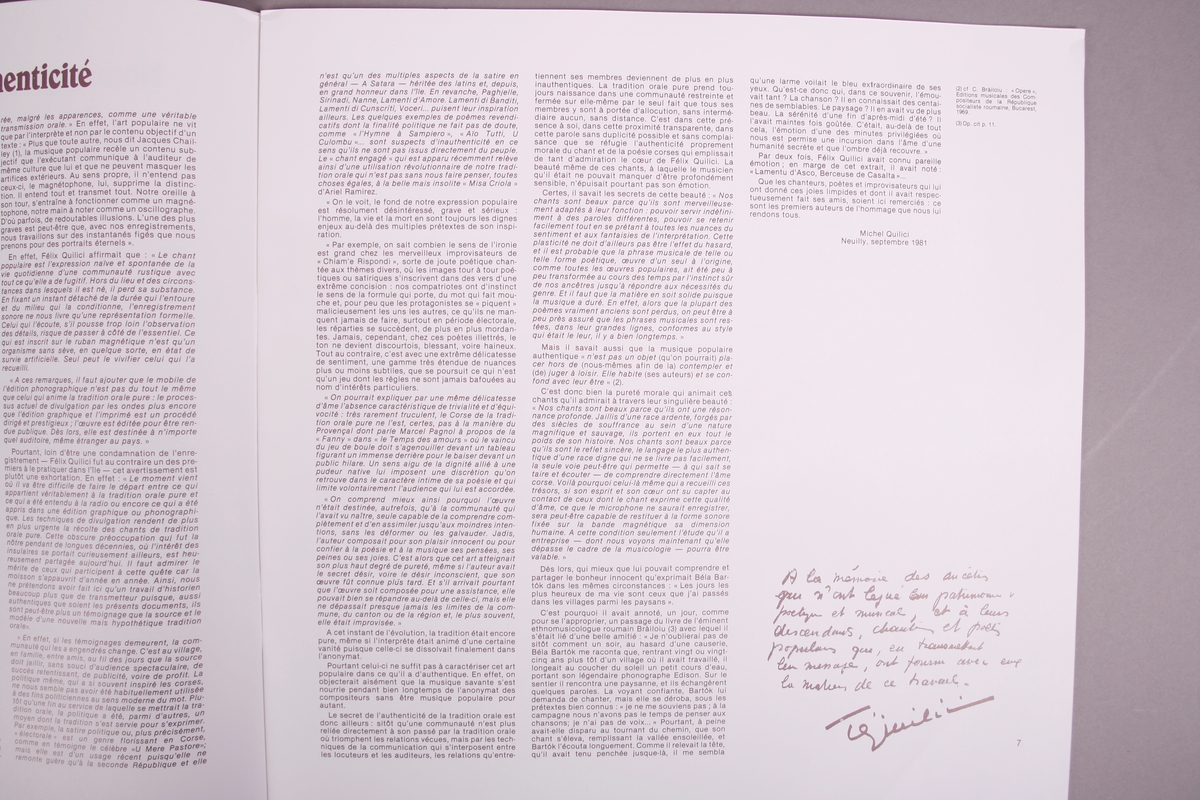 henticité
rée, malgré les apparences, comme une véritable
transmission orale. » En effet, l'art populaire ne vit
que par l'interprète et non par le contenu objectif d'un
texte : « Plus que toute autre, nous dit Jacques Chail-
ley (1), la musique populaire recèle un contenu sub-
jectif que l'exécutant communique à l'auditeur de
même culture que lui et que ne peuvent masquer les
artifices extérieurs. Au sens propre, il n'entend pas
ceux-ci, le magnétophone, lui, supprime la distinc-
tion. Il entend tout et transmet tout. Notre oreille à
son tour, s'entraîne à fonctionner comme un magné-
tophone, notre main à noter comme un oscillographe.
D'où parfois, de redoutables illusions. L'une des plus
graves est peut-être que, avec nos enregistrements,
nous travaillons sur des instantanés figés que nous
prenons pour des portraits éternels ».
En effet, Félix Quilici affirmait que : « Le chant
populaire est l'expression naïve et spontanée de la
vie quotidienne d'une communauté rustique avec
tout ce qu'elle a de fugitif. Hors du lieu et des circons-
tances dans lesquels il est né, il perd sa substance.
En fixant un instant détaché de la durée qui l'entoure
et du milieu qui la conditionne, l'enregistrement
sonore ne nous livre qu'une représentation formelle.
Celui qui l'écoute, s'il pousse trop loin l'observation
des détails, risque de passer à côté de l'essentiel. Ce
qui est inscrit sur le ruban magnétique n'est qu'un
organisme sans sève, en quelque sorte, en état de
survie artificielle. Seul peut le vivifier celui qui l'a
recueilli.
« A ces remarques, il faut ajouter que le mobile de
l'édition phonographique n'est pas du tout le même
que celui qui anime la tradition orale pure : le proces-
sus actuel de divulgation par les ondes plus encore
que l'édition graphique et l'imprimé est un procédé
dirigé et prestigieux ; l'œuvre est éditée pour être ren-
due publique. Dès lors, elle est destinée à n'importe
quel auditoire, même étranger au pays. »
Pourtant, loin d'être une condamnation de l'enre-
gistrement — Félix Quilici fut au contraire un des pre-
miers à le pratiquer dans l'île — cet avertissement est
plutôt une exhortation. En effet : « Le moment vient
où il va être difficile de faire le départ entre ce qui
appartient véritablement à la tradition orale pure et
ce qui a été entendu à la radio ou encore ce qui a été
appris dans une édition graphique ou phonographi-
que. Les techniques de divulgation rendent de plus
en plus urgente la récolte des chants de tradition
orale pure. Cette obscure préoccupation qui fut la
nôtre pendant de longues décennies, où l'intérêt des
insulaires se portait curieusement ailleurs, est heu-
reusement partagée aujourd'hui. Il faut admirer le
mérite de ceux qui participent à cette quête car la
moisson s'appauvrit d'année en année. Ainsi, nous
ne prétendons avoir fait ici qu'un travail d'historien
beaucoup plus que de transmetteur puisque, aussi
authentiques que soient les présents documents, ils
sont peut-être plus un témoignage que la source et le
modèle d'une nouvelle mais hypothétique tradition
orale».
« En effet, si les témoignages demeurent, la com-
munauté qui les a engendrés change. C'est au village,
en famille, entre amis, au fil des jours que la source
doit jaillir, sans souci d'audience spectaculaire, de
succès retentissant, de publicité, voire de profit. La
politique même, qui a si souvent inspiré les corses,
ne nous semble pas avoir été habituellement utilisée
à des fins politiciennes au sens moderne du mot. Plu-
tôt qu'une fin au service de laquelle se mettrait la tra-
dition orale, la politique a été, parmi d'autres, un
moyen dont la tradition s'est servie pour s'exprimer.
Par exemple, la satire politique ou, plus précisément,
« électorale » est un genre florissant en Corse,
comme en témoigne le célèbre «U Mere Pastore»;
mais elle est d'un usage récent puisqu'elle ne
remonte guère qu'à la seconde République et elle
n'est qu'un des multiples aspects de la satire en
général — A Satara — héritée des latins et, depuis,
en grand honneur dans l'île. En revanche, Paghjelle,
Sirinadi, Nanne, Lamenti d'Amore. Lamenti di Banditi,
Lamenti di Cunscritti, Voceri... puisent leur inspiration
ailleurs. Les quelques exemples de poèmes revendi-
catifs dont la finalité politique ne fait pas de doute,
comme « l'Hymne à Sampiero », « Alo Tutti, U
Culombu »... sont suspects d'inauthenticité en ce
sens qu'ils ne sont pas issus directement du peuple.
Le « chant engagé » qui est apparu récemment relève
ainsi d'une utilisation révolutionnaire de notre tradi-
tion orale qui n'est pas sans nous faire penser, toutes
choses égales, à la belle mais insolite « Misa Criola »
d'Ariel Ramirez.
« On le voit, le fond de notre expression populaire
est résolument désintéressé, grave et sérieux :
l'homme, la vie et la mort en sont toujours les dignes
enjeux au-delà des multiples prétextes de son inspi-
ration.
« Par exemple, on sait combien le sens de l'ironie
est grand chez les merveilleux improvisateurs de
« Chiam'e Rispondi », sorte de joute poétique chan-
tée aux thèmes divers, où les images tour à tour poé-
tiques ou satiriques s'inscrivent dans des vers d'une
extrême concision : nos compatriotes ont d'instinct
le sens de la formule qui porte, du mot qui fait mou-
che et, pour peu que les protagonistes se « piquent »
malicieusement les uns les autres, ce qu'ils ne man-
quent jamais de faire, surtout en période électorale,
les réparties se succèdent, de plus en plus mordan-
tes. Jamais, cependant, chez ces poètes illettrés, le
ton ne devient discourtois, blessant, voire haineux.
Tout au contraire, c'est avec une extrême délicatesse
de sentiment, une gamme très étendue de nuances
plus ou moins subtiles, que se poursuit ce qui n'est
qu'un jeu dont les règles ne sont jamais bafouées au
nom d'intérêts particuliers.
« On pourrait expliquer par une même délicatesse
d'âme l'absence caractéristique de trivialité et d'équi-
vocité : très rarement truculent, le Corse de la tradi-
tion orale pure ne l'est, certes, pas à la manière du
Provençal dont parle Marcel Pagnol à propos de la
« Fanny » dans « le Temps des amours » où le vaincu
du jeu de boule doit s'agenouiller devant un tableau
figurant un immense derrière pour le baiser devant un
public hilare. Un sens aigu de la dignité allié à une
pudeur native lui imposent une discrétion qu'on
retrouve dans le caractère intime de sa poésie et qui
limite volontairement l'audience qui lui est accordée.
« On comprend mieux ainsi pourquoi l'œuvre
n'était destinée, autrefois, qu'à la communauté qui
l'avait vu naître, seule capable de la comprendre com-
plètement et d'en assimiler jusqu'aux moindres inten-
tions, sans les déformer ou les galvauder. Jadis,
l'auteur composait pour son plaisir innocent ou pour
confier à la poésie et à la musique ses pensées, ses
peines ou ses joies. C'est alors que cet art atteignait
son plus haut degré de pureté, même si l'auteur avait
le secret désir, voire le désir inconscient, que son
œuvre fût connue plus tard. Et s'il arrivait pourtant
que l'œuvre soit composée pour une assistance, elle
pouvait bien se répandre au-delà de celle-ci, mais elle
ne dépassait presque jamais les limites de la com-
mune, du canton ou de la région et, le plus souvent,
elle était improvisée. »
A cet instant de l'évolution, la tradition était encore
pure, même si l'interprète était animé d'une certaine
vanité puisque celle-ci se dissolvait finalement dans
l'anonymat.
Pourtant celui-ci ne suffit pas à caractériser cet art
populaire dans ce qu'il a d'authentique. En effet, on
objecterait aisément que la musique savante s'est
nourrie pendant bien longtemps de l'anonymat des
compositeurs sans être musique populaire pour
autant.
Le secret de l'authenticité de la tradition orale est
donc ailleurs : sitôt qu'une communauté n'est plus
reliée directement à son passé par la tradition orale
où triomphent les relations vécues, mais par les tech-
niques de la communication qui s'interposent entre
les locuteurs et les auditeurs, les relations qu'entre-
tiennent ses membres deviennent de plus en plus
inauthentiques. La tradition orale pure prend tou-
jours naissance dans une communauté restreinte et
fermée sur elle-même par le seul fait que tous ses
membres y sont à portée d'allocution, sans intermé-
diaire aucun, sans distance. C'est dans cette pré-
sence à soi, dans cette proximité transparente, dans
cette parole sans duplicité possible et sans complai-
sance que se réfugie l'authenticité proprement
morale du chant et de la poésie corses qui emplissait
de tant d'admiration le cœur de Félix Quilici. La
beauté même de ces chants, à laquelle le musicien
qu'il était ne pouvait manquer d'être profondément
sensible, n'épuisait pourtant pas son émotion.
Certes, il avait les secrets de cette beauté : « Nos
chants sont beaux parce qu'ils sont merveilleuse-
ment adaptés à leur fonction : pouvoir servir indéfini-
ment à des paroles différentes, pouvoir se retenir
facilement tout en se prêtant à toutes les nuances du
sentiment et aux fantaisies de l'interprétation. Cette
plasticité ne doit d'ailleurs pas être l'effet du hasard,
et il est probable que la phrase musicale de telle ou
telle forme poétique, œuvre d'un seul à l'origine,
comme toutes les œuvres populaires, ait été peu à
peu transformée au cours des temps par l'instinct sûr
de nos ancêtres jusqu'à répondre aux nécessités du
genre. Et il faut que la matière en soit solide puisque
la musique a duré. En effet, alors que la plupart des
poèmes vraiment anciens sont perdus, on peut être à
peu près assuré que les phrases musicales sont res-
tées, dans leur grandes lignes, conformes au style
qui était le leur, il y a bien longtemps. »
Mais il savait aussi que la musique populaire
authentique « n'est pas un objet (qu'on pourrait) pla-
cer hors de (nous-mêmes afin de la) contempler et
(de) juger à loisir. Elle habite (ses auteurs) et se con-
fond avec leur être » (2).
C'est donc bien la pureté morale qui animait ces
chants qu'il admirait à travers leur singulière beauté :
« Nos chants sont beaux parce qu'ils ont une réson-
nance profonde. Jaillis d'une race ardente, forgés par
des siècles de souffrance au sein d'une nature
magnifique et sauvage, ils portent en eux tout le
poids de son histoire. Nos chants sont beaux parce
qu'ils sont le reflet sincère, le langage le plus authen-
tique d'une race digne qui ne se livre pas facilement,
la seule voie peut-être qui permette — à qui sait se
taire et écouter — de comprendre directement l'âme
corse. Voilà pourquoi celui-là même qui a recueilli ces
trésors, si son esprit et son cœur ont su capter au
contact de ceux dont le chant exprime cette qualité
d'âme, ce que le microphone ne saurait enregistrer,
sera peut-être capable de restituer à la forme sonore
fixée sur la bande magnétique sa dimension
humaine. A cette condition seulement l'étude qu'il a
entreprise — dont nous voyons maintenant qu'elle
dépasse le cadre de la musicologie — pourra être
valable. »
Dès lors, qui mieux que lui pouvait comprendre et
partager le bonheur innocent qu'exprimait Béla Bar-
tók dans les mêmes circonstances : « Les jours les
plus heureux de ma vie sont ceux que j'ai passés
dans les villages parmi les paysans ».
C'est pourquoi il avait annoté, un jour, comme
pour se l'approprier, un passage du livre de l'éminent
ethnomusicologue roumain Brăiloiu (3) avec lequel il
s'était lié d'une belle amitié : « Je n'oublierai pas de
sitôt comment un soir, au hasard d'une causerie,
Béla Bartók me raconta que, rentrant vingt ou vingt-
cinq ans plus tôt d'un village où il avait travaillé, il
longeait au coucher du soleil un petit cours d'eau,
portant son légendaire phonographe Edison. Sur le
sentier il rencontra une paysanne, et ils échangèrent
quelques paroles. La voyant confiante, Bartók lui
demanda de chanter, mais elle se déroba, sous les
prétextes bien connus : « je ne me souviens pas ; à la
campagne nous n'avons pas le temps de penser aux
chansons; je n'ai pas de voix... » Pourtant, à peine
avait-elle disparu au tournant du chemin, que son
chant s'éleva, remplissant la vallée ensoleillée, et
Bartók l'écouta longuement. Comme il relevait la tête,
qu'il avait tenu penchée jusque-là, il me sembla
qu'une larme voilait le bleu extraordinaire de ses
yeux. Qu'est-ce donc qui, dans ce souvenir, l'émou-
vait tant ? La chanson ? Il en connaissait des centai-
nes de semblables. Le paysage ? Il en avait vu de plus
beau. La sérénité d'une fin d'après-midi d'été ? Il
l'avait maintes fois goûtée. C'était, au-delà de tout
cela, l'émotion d'une des minutes privilégiées où
nous est permise une incursion dans l'âme d'une
humanité secrète et que l'ombre déjà recouvre. »
Par deux fois, Félix Quilici avait connu pareille
émotion; en marge de cet extrait, il avait noté :
« Lamentu d'Asco, Berceuse de Casalta »...
Que les chanteurs, poètes et improvisateurs qui lui
ont donné ces joies limpides et dont il avait respec-
tueusement fait ses amis, soient ici remerciés : ce
sont les premiers auteurs de l'hommage que nous lui
rendons tous.
Michel Quilici
Neuilly, septembre 1981
(2) cf. C. Brăiloiu : « Opere »,
Editions musicales des Com-
positeurs de la République
socialiste roumaine, Bucarest,
1969.
(3) Op. cit. p. 11.
A la mémoire des ancêtres
qui n'ont légué leur patrimoine
poétique et musical, et à leurs
descendants, chanteurs et poètes
populaires qui, en transmettant
leur message, ont fourni avec eux
la matière de ce travail.
F. Quilici
7